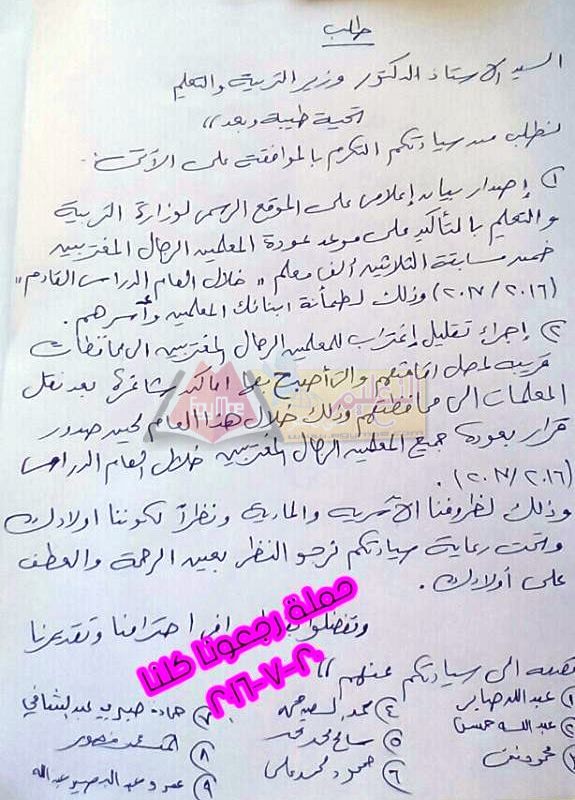 طلب
السيد الاستاذ الدكتور وزير التربية والتعليم
تحية طيبة وبعد،،
نطلب من سيادتكم التكرم بالموافقة على الآتى :-
① إصدار بيان إعلامى على الموقع الرسمى لوزارة التربية
والتعليم بالتأكيد على موعد عودة المعلمين الرجال المغتربين
ضمن مسابقة الثلاثين ألف معلم "خلال العام الدراسى القادم"
(٢٠١٦/٢٠١٧) وذلك لطمأنة ابنائك المعلمين وأسرهم .
② إجراء تقليل إغتراب للمعلمين الرجال المغتربين الى محافظات
قريبة لمحل اقامتهم والتى أصبح بها اماكن شاغرة بعد نقل
المعلمات الى محافظتهم وذلك خلال هذا العام لحين صدور
قرار بعودة جميع المعلمين الرجال المغتربين خلال العام الدراسى
(٢٠١٦/٢٠١٧) .
وذلك لظروفنا الأسرية والمادية ونظراً لكوننا اولادك
وتحت رعاية سيادتكم نرجو النظر بعين الرحمة والعطف
على أولادك .
وتفضلوا احترامنا وتقديرنا
حملة رجعونا كلنا
٢٠-٧-٢٠١٦
الى سيادتكم عنهم //
١ عبدالله صابر
٢ عبدالله حسن
٣ محمود
٤ محمد السيد
٥ سامح محمد
٦ محمود محمد على
٧ حماده صبرى عبدالشافى
٨ محمد منصور
٩ عمرو عبدالله